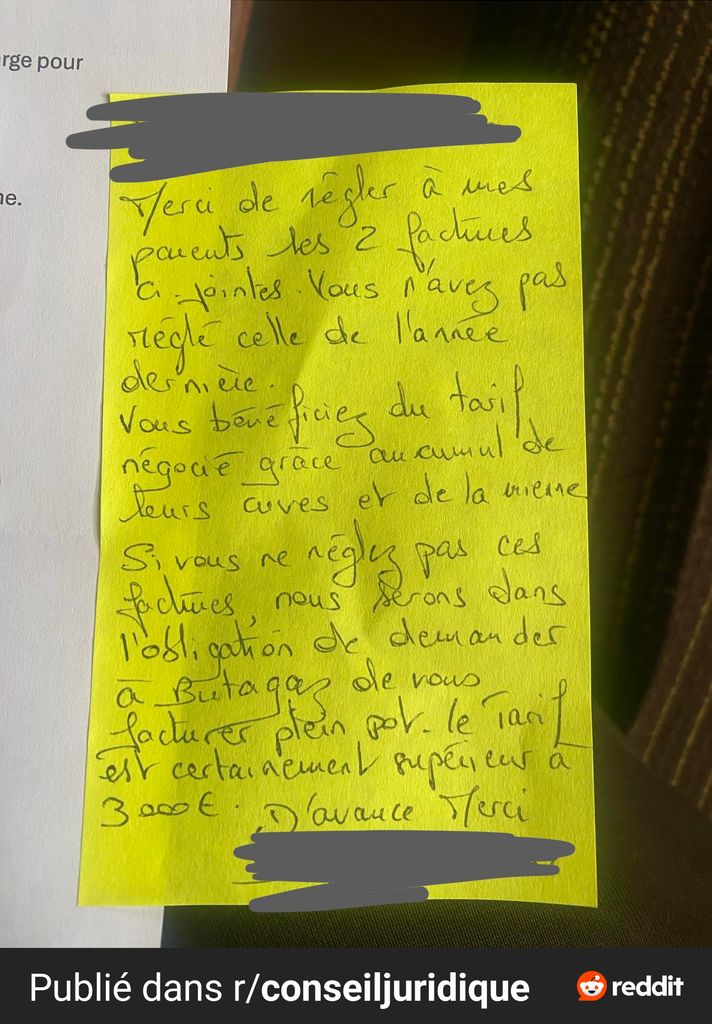 rge pour
ne.
Merci de régler à mes
parents les 2 factures
ci-jointes. Vous n'avez pas
réglé celle de l'année
dernière.
Vous bénéficiez du tarif
négocié grâce au cumul de
leurs cuves et de la mienne
Si vous ne réglez pas ces
factures, nous serons dans
l'obligation de demander
à Butagaz de vous
facturer plein pot. le Tarif
est certainement supérieur à
3000€. D'avance Merci
Publié dans r/conseiljuridique
reddit